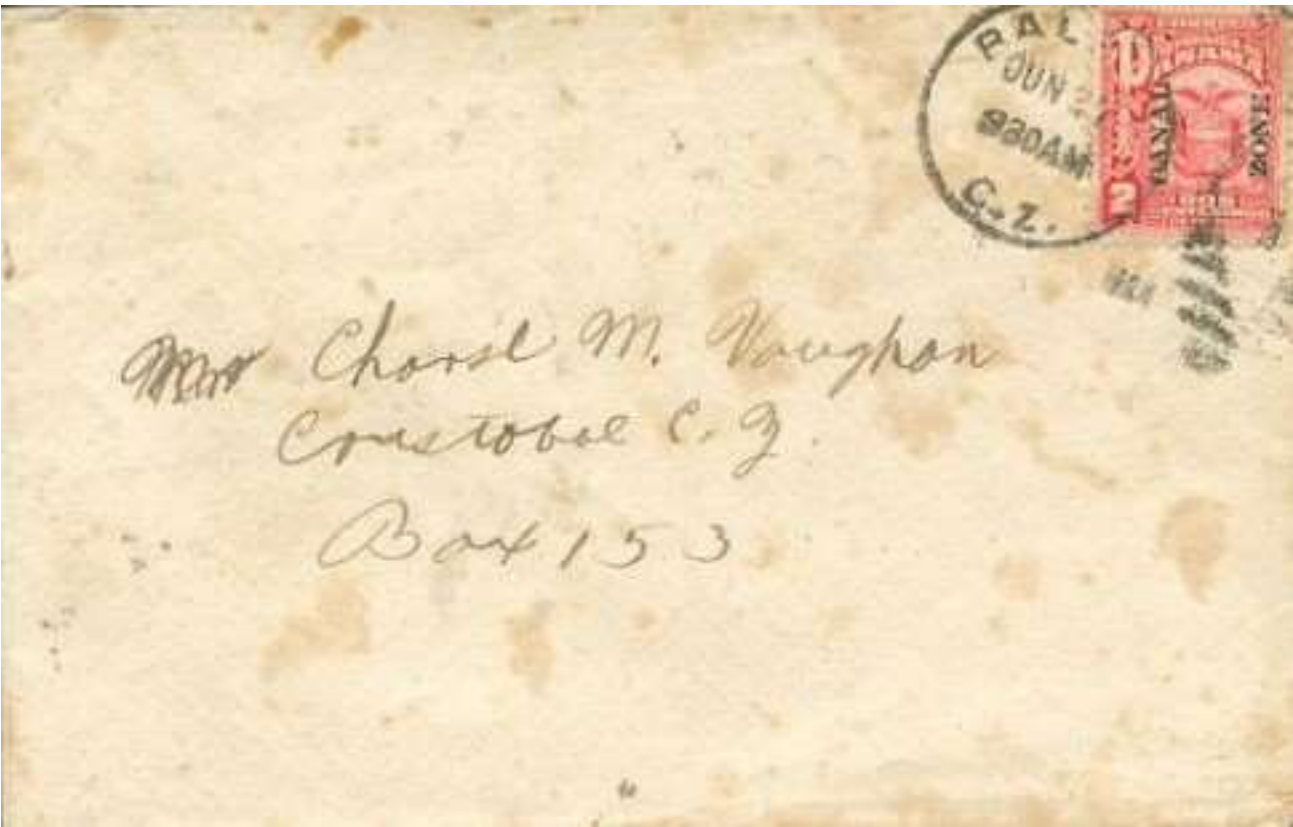 BAL
JUN
930AM
C.Z.
CANAL
ZONE
2
Chansl M. Vaughan
Cristobal C. Z.
Box 153